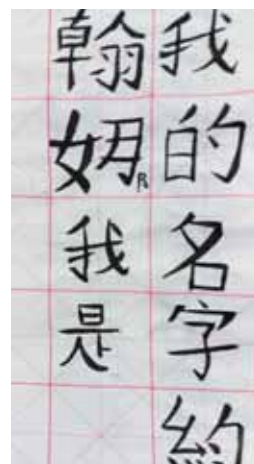 我的名字約
翰我是